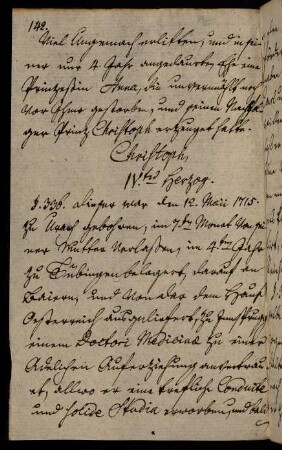 142.
viel Ungemach erlitten, und in sei-
ner nur 4 Jahr angedaurten Ehe eine
Prinzessin Anna, die unvermählt noch
vor Ihme gestorben, und seinen Nachfol-
ger Prinz Christoph erzeuget hatte.
Christoph,
IV.ter Herzog.
§. 336. Dieser war den 12. Maii 1715.
zu Urach gebohren, im 7.ten Monat von sei-
ner Mutter verlassen, im 4.ten Jahr
zu Tübingen belagert, darauf an
Baiern, und von dar dem Hauß
Oesterreich ausgeliefert, zu
einem Doctori Medicinæ zu einer
Adelichen Auferziehung anvertrau-
et, allwo er eine treffliche Conduite
und solide Studia erworben, und bald